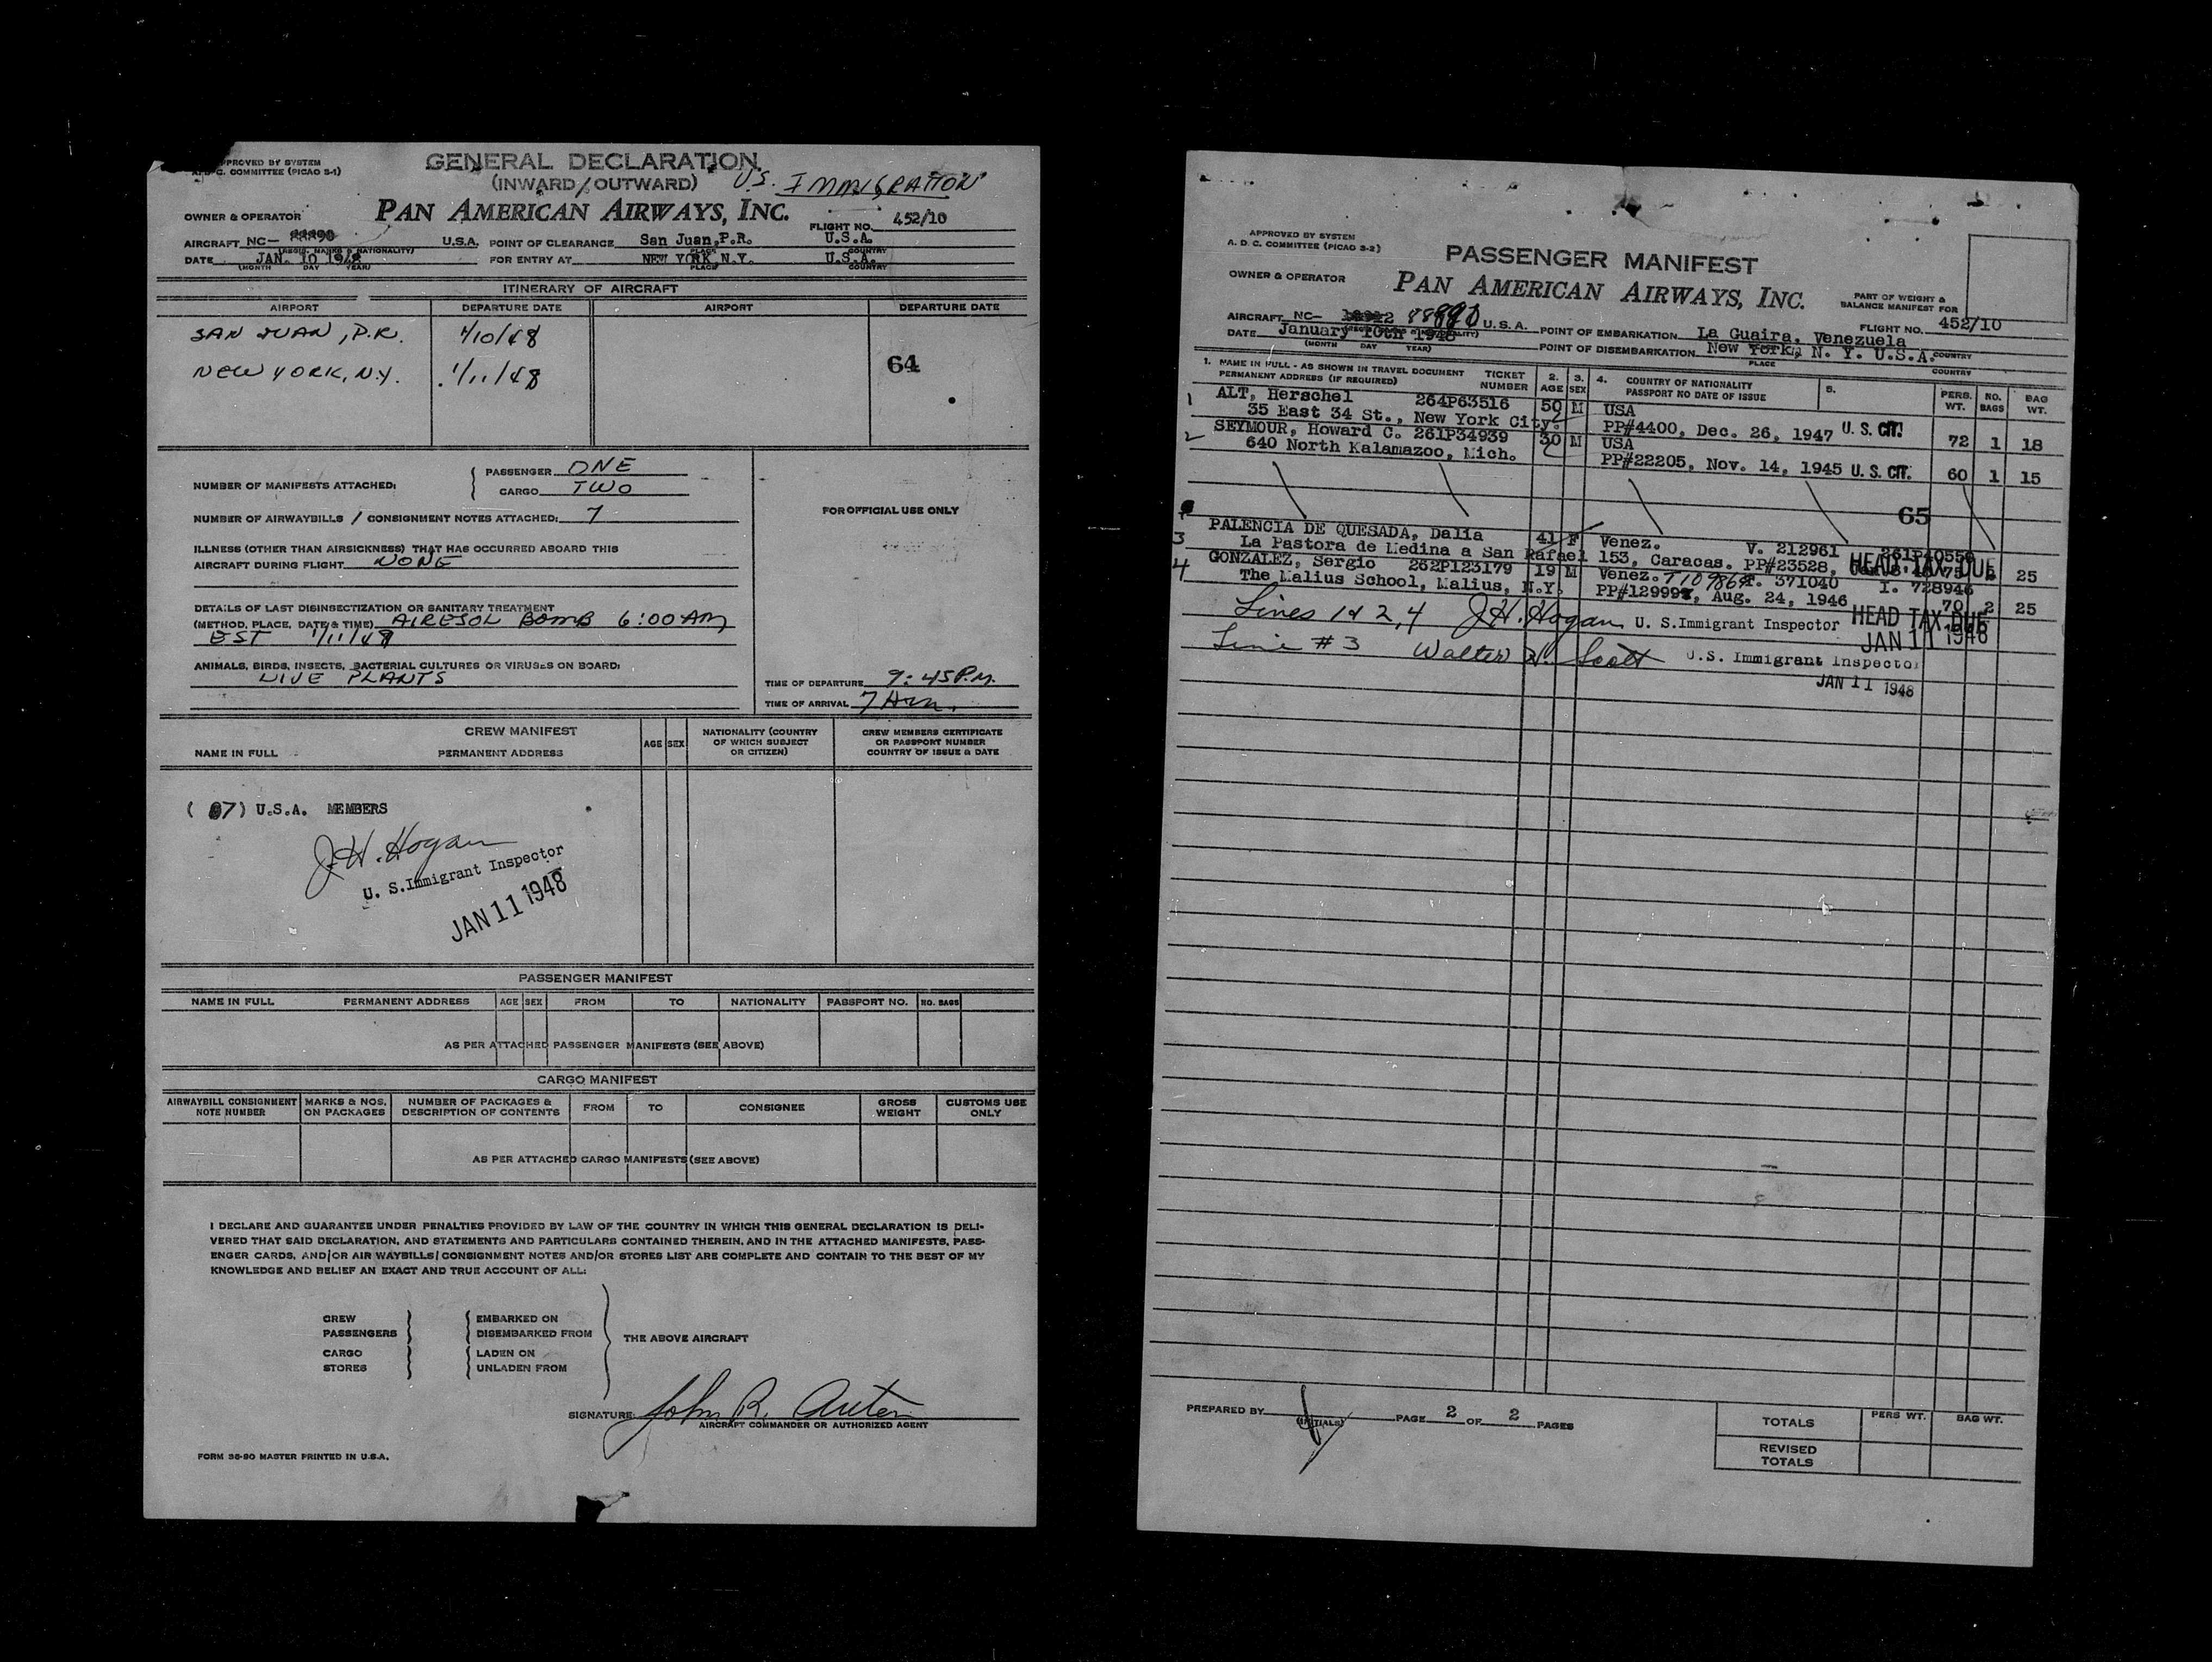 APPROVED BY SYSTEM
C. COMMITTEE (PICAO S-1)
GENERAL DECLARATION
(INWARD/OUTWARD) U.S. IMMIGRATION
OWNER & OPERATOR PAN AMERICAN AIRWAYS, INC. FLIGHT NO. 452/10
AIRCRAFT NC— U.S.A. POINT OF CLEARANCE San Juan,P.R. U.S.A.
(REGIS. MARKS & NATIONALITY) PLACE COUNTRY
DATE JAN. 10 1948 FOR ENTRY AT NEW YORK N.Y. U.S.A.
(MONTH DAY YEAR) PLACE COUNTRY
ITINERARY OF AIRCRAFT
AIRPORT DEPARTURE DATE AIRPORT DEPARTURE DATE
SAN JUAN, P.R. 1/10/48
NEW YORK, N.Y. 1/11/48
64
NUMBER OF MANIFESTS ATTACHED: PASSENGER ONE
CARGO TWO
NUMBER OF AIRWAYBILLS / CONSIGNMENT NOTES ATTACHED: 7
FOR OFFICIAL USE ONLY
ILLNESS (OTHER THAN AIRSICKNESS) THAT HAS OCCURRED ABOARD THIS
AIRCRAFT DURING FLIGHT NONE
DETAILS OF LAST DISINSECTIZATION OR SANITARY TREATMENT
(METHOD, PLACE, DATE & TIME) AIRESOL BOMB 6:00 AM
EST 1/11/48
ANIMALS, BIRDS, INSECTS, BACTERIAL CULTURES OR VIRUSES ON BOARD:
LIVE PLANTS
TIME OF DEPARTURE 9:45 P.M.
TIME OF ARRIVAL
CREW MANIFEST
NAME IN FULL PERMANENT ADDRESS AGE SEX NATIONALITY (COUNTRY OF WHICH SUBJECT OR CITIZEN) CREW MEMBERS CERTIFICATE OR PASSPORT NUMBER COUNTRY OF ISSUE & DATE
( 07) U.S.A. MEMBERS
J.H. Hogan
U. S. Immigrant Inspector
JAN 11 1948
PASSENGER MANIFEST
NAME IN FULL PERMANENT ADDRESS AGE SEX FROM TO NATIONALITY PASSPORT NO. NO. BAGS
AS PER ATTACHED PASSENGER MANIFESTS (SEE ABOVE)
CARGO MANIFEST
AIRWAYBILL CONSIGNMENT NOTE NUMBER MARKS & NOS. ON PACKAGES NUMBER OF PACKAGES & DESCRIPTION OF CONTENTS FROM TO CONSIGNEE GROSS WEIGHT CUSTOMS USE ONLY
AS PER ATTACHED CARGO MANIFESTS (SEE ABOVE)
I DECLARE AND GUARANTEE UNDER PENALTIES PROVIDED BY LAW OF THE COUNTRY IN WHICH THIS GENERAL DECLARATION IS DELI-
VERED THAT SAID DECLARATION, AND STATEMENTS AND PARTICULARS CONTAINED THEREIN, AND IN THE ATTACHED MANIFESTS, PASS-
ENGER CARDS, AND/OR AIR WAYBILLS/CONSIGNMENT NOTES AND/OR STORES LIST ARE COMPLETE AND CONTAIN TO THE BEST OF MY
KNOWLEDGE AND BELIEF AN EXACT AND TRUE ACCOUNT OF ALL:
CREW EMBARKED ON
PASSENGERS DISEMBARKED FROM
THE ABOVE AIRCRAFT
CARGO LADEN ON
STORES UNLADEN FROM
SIGNATURE: John R. Auten
AIRCRAFT COMMANDER OR AUTHORIZED AGENT
FORM 36-90 MASTER PRINTED IN U.S.A.
APPROVED BY SYSTEM
A. D. C. COMMITTEE (PICAO S-2)
PASSENGER MANIFEST
OWNER & OPERATOR PAN AMERICAN AIRWAYS, INC. PART OF WEIGHT & BALANCE MANIFEST FOR
AIRCRAFT NC— 88890 U.S.A. POINT OF EMBARKATION La Guaira, Venezuela FLIGHT NO. 452/10
DATE January 10th 1948 POINT OF DISEMBARKATION New York, N. Y. U.S.A. COUNTRY
(MONTH DAY YEAR) PLACE COUNTRY
1. NAME IN FULL - AS SHOWN IN TRAVEL DOCUMENT PERMANENT ADDRESS (IF REQUIRED) TICKET NUMBER 2. AGE 3. SEX 4. COUNTRY OF NATIONALITY PASSPORT NO DATE OF ISSUE 5. PERS. WT. NO. BAGS BAG WT.
1 ALT, Herschel 264P63516 50 M USA
35 East 34 St., New York City. PP#4400, Dec. 26, 1947 U. S. CIT. 72 1 18
2 SEYMOUR, Howard C. 261P34939 30 M USA
640 North Kalamazoo, Mich. PP#22205, Nov. 14, 1945 U. S. CIT. 60 1 15
65
3 PALENCIA DE QUESADA, Dalia 41 F Venez. V. 212961 261P40550
La Pastora de Medina a San Rafael 153, Caracas. PP#23528, HEAD TAX DUE 25
4 GONZALEZ, Sergio 262P123179 19 M Venez. T109864. 371040 I. 728946
The Malius School, Malius, N.Y. PP#12999, Aug. 24, 1946 70 2 25
Lines 1 & 2, 4 J.H. Hogan U. S. Immigrant Inspector HEAD TAX DUE
JAN 11 1948
Line #3 Walter W. Scott U.S. Immigrant Inspector
JAN 11 1948
PREPARED BY (INITIALS) PAGE 2 OF 2 PAGES
TOTALS PERS WT. BAG WT.
REVISED TOTALS